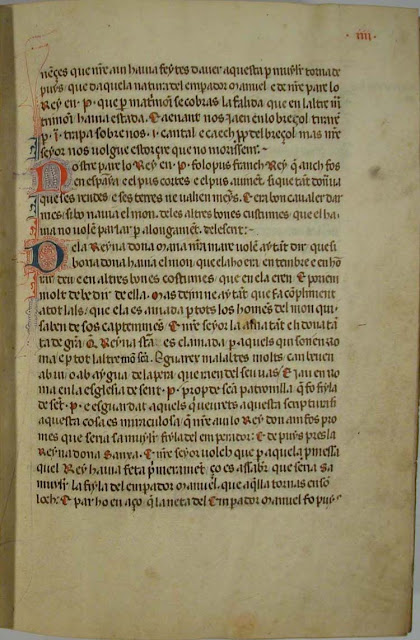 ·iiii·
nençes que nr̄e auí hauia feytes dauer aquesta ꝑ muyl̄r torna de
puys. que daquela natura del empador manuel. e de nr̄e pare lo
Rey en .P. que ꝑ matrimoni se cobras la falida que en laltre ma
trimoni hauia estada. E aenant nos jaen en lo breçol tirarē
ꝑ .i. trapa sobre nos .i. cantal. e caech prop del breçol mas nr̄e
seyor nos volgue estorçre que no morissem.
Nostre pare lo Rey en .P. fo lo pus franch Rey que anch fos
en espanya. e el pus cortes. e el pus auinent. si que tant donaua
que ses rendes. e ses terres ne ualien meyns. E era bon caualer dar
mes. si bo nauia el mon. de les altres bones custumes que el ha
uia no uolē parlar ꝑ alongamēt. de lescrit.
De la Reyna dona maria nr̄a mare uolē aytāt dir que si
bona dona hauia el mon que ela ho era en tembre e en hō
rar deu. e en altres bones costumes. que en ela eren. E poriem
molt de be dir de ella. Mas deym ne aytāt que fa cōpliment
a tot lals. que ela es amada ꝑ tots los homēs del mon qui
saben de sos capteniments. E nr̄e seyor la ama tāt e li dona tā
ta de gr̄a. Q̄ Reyna sc̄a es clamada ꝑ aquels qui son en ro
ma e ꝑ tot laltre mon
ab ui o ab aygua de la pera que raen del seu uas. E jau en ro
ma en la esglesia de sent .P. prop de sc̄a patronilla que fo fiyla
de sēt .P. e esguardat aquels que ueurets aquesta scriptura si
aquesta cosa es miraculosa que nr̄e auilo Rey don amfos pro
mes que seria sa muyl̄r fiyla del emperador. E depuys pres la
Reyna dona Sanxa. E nr̄e seyor uolch que ꝑ aquela ꝓmessa
quel Rey hauia feta
muyl̄r la fiyla del empador manuel. que aq̄lla tornas en sō
loch. E par ho en aço. q̄ la neta del Empador manuel fo puys